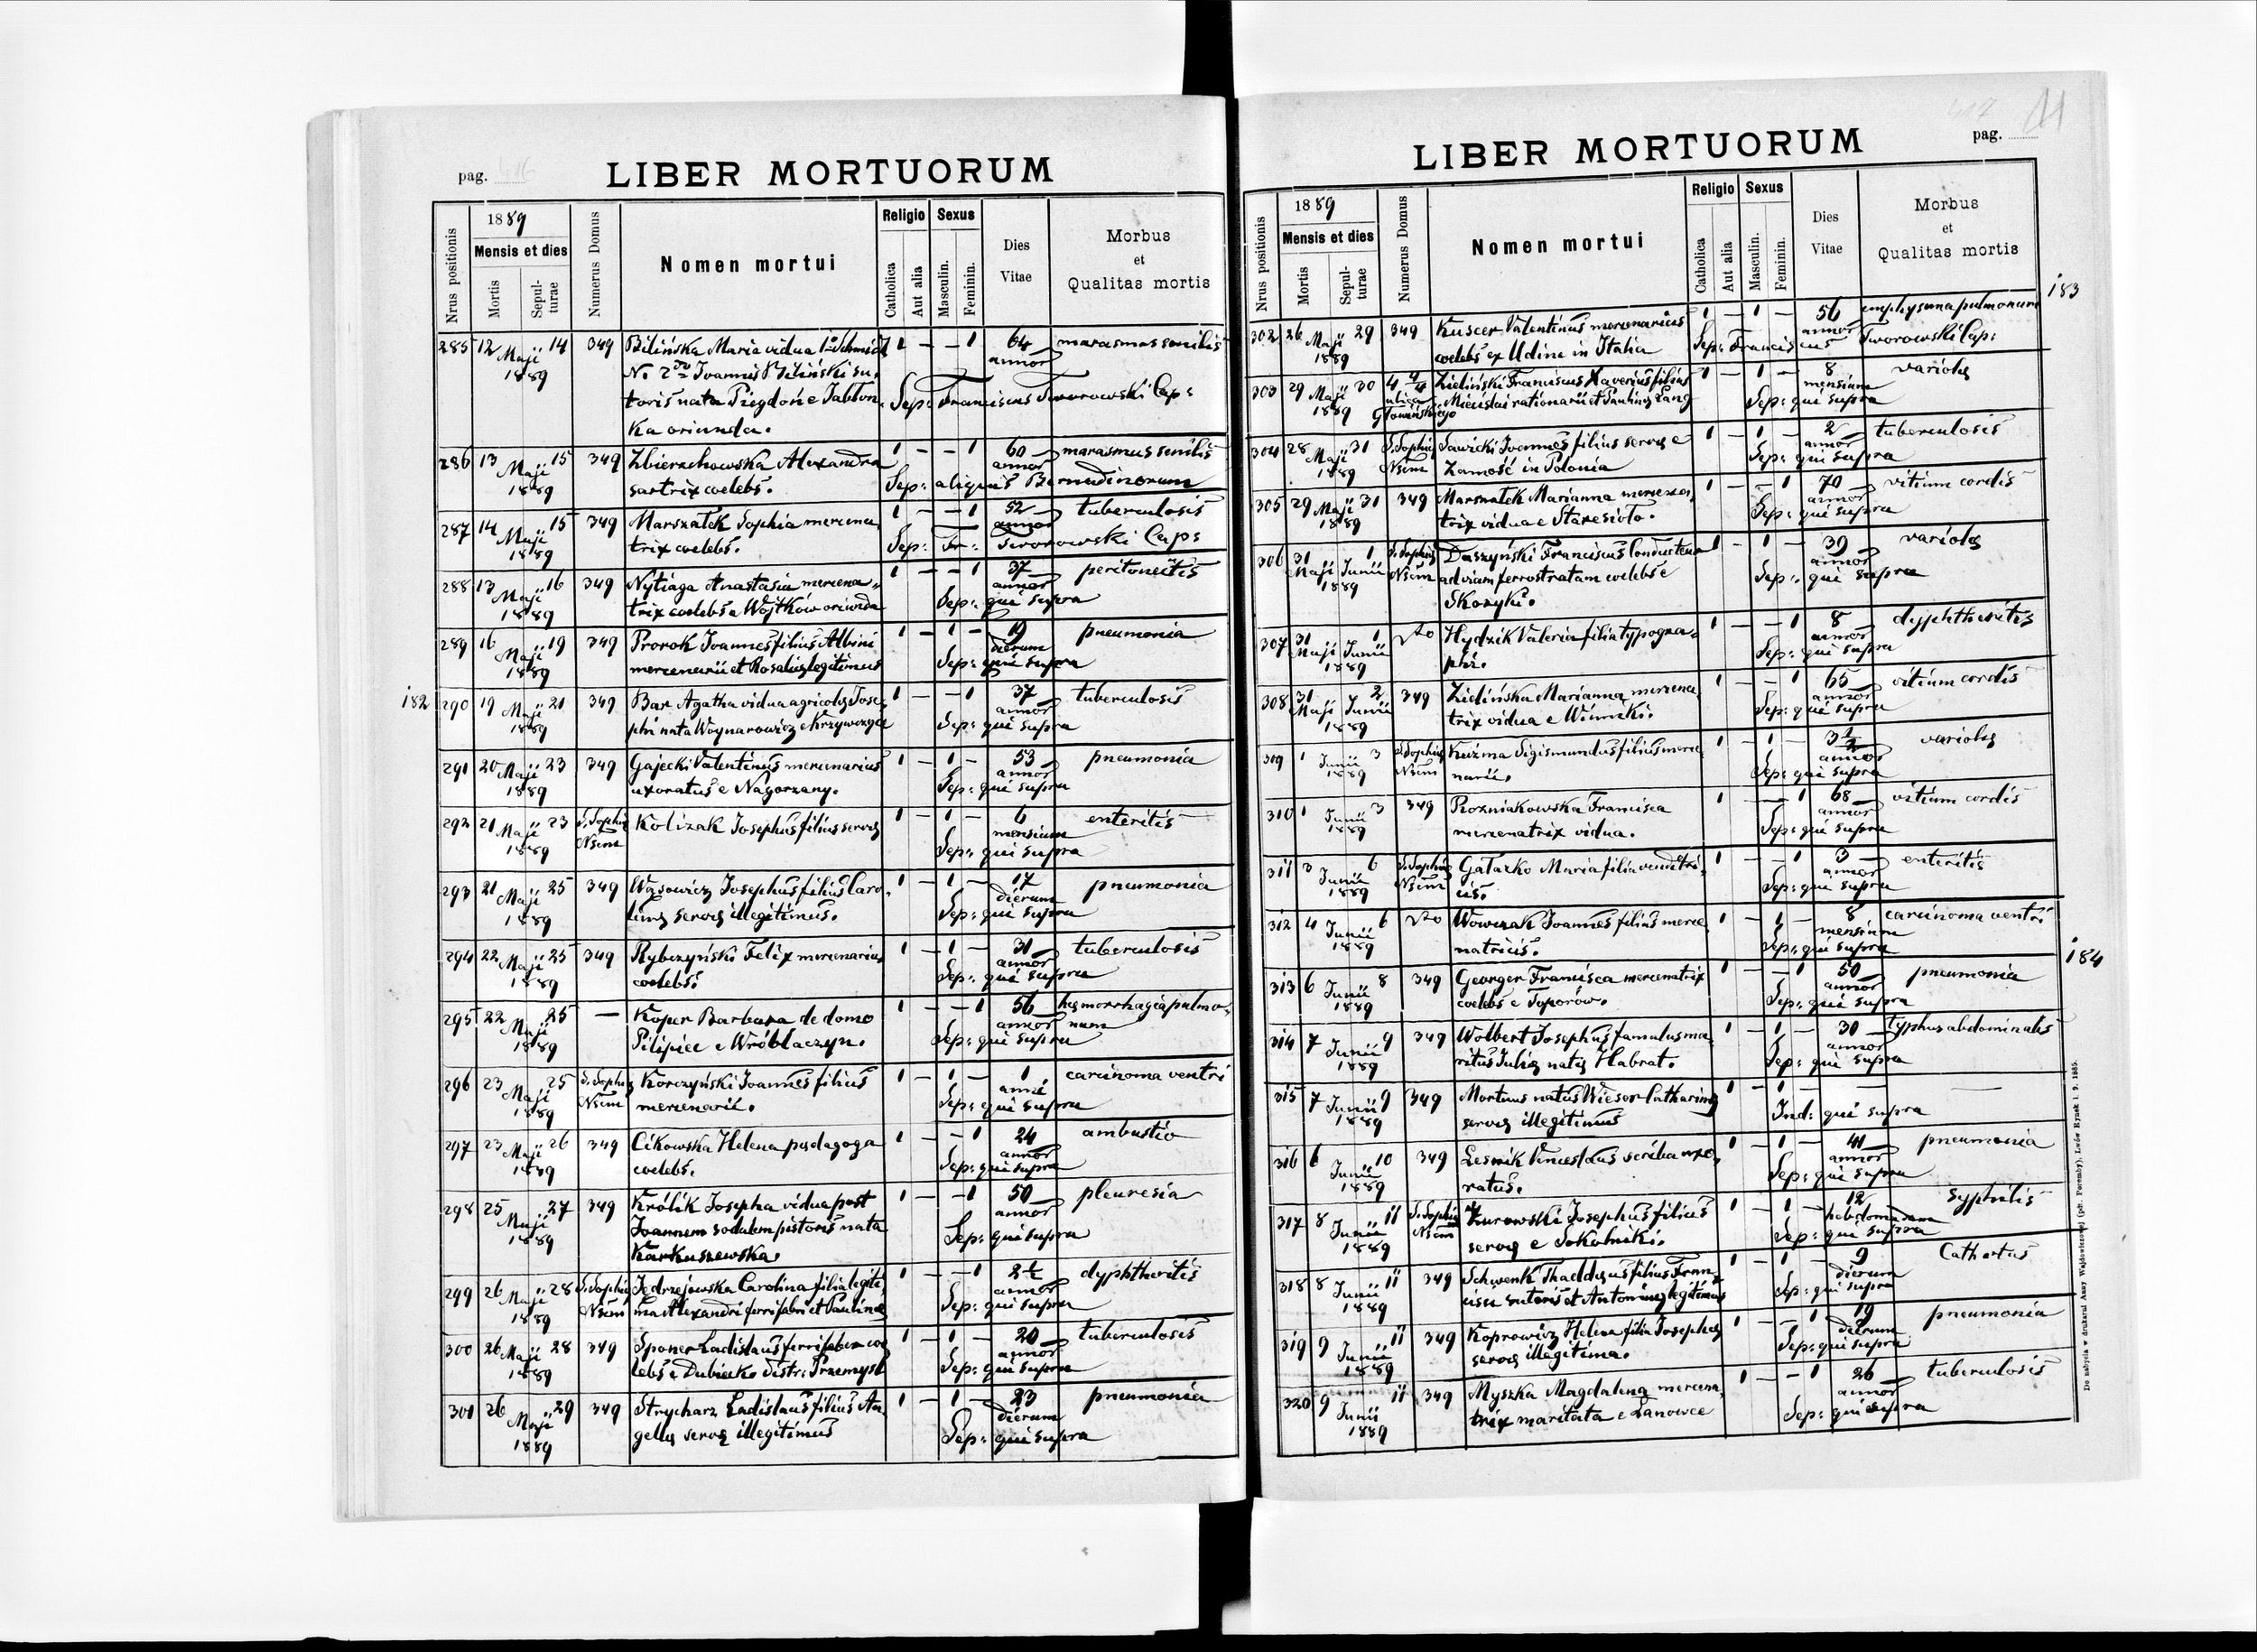 pag. 416
LIBER MORTUORUM
Nrus positionis
1889
Mensis et dies
Mortis
Sepul-
turae
Numerus Domus
Nomen mortui
Religio
Catholica
Aut alia
Sexus
Masculin.
Feminin.
Dies
Vitae
Morbus
et
Qualitas mortis
285 12 Maji 14 349 Bilińska Maria vidua 1o Schmidt 1 – – 1 64 marasmus senilis
1889 No 2do Joannis Biliński su, annor
toris nata Piegdon e Jabłon, Sep: Franciscus Tworowski Cap:
ka oriunda.
286 13 Maji 15 349 Zbierzchowska Alexandra 1 – – 1 60 marasmus senilis
1889 sartrix coelebs. annor Sep: aliquis Bernardinorum
287 14 Maji 15 349 Marszałek Sophia mercena, 1 – – 1 52 tuberculosis
1889 trix coelebs. annor Sep: Fr: Tworowski Cap:
288 13 Maji 16 349 Nytiaga Anastasia mercena, 1 – – 1 37 peritoneitis
1889 trix coelebs e Wojtków oriunda annor Sep: qui supra
289 16 Maji 19 349 Prorok Joannes filius Albini 1 – 1 – 19 pneumonia
1889 mercenarii et Rosaliæ legitimus dierum Sep: qui supra
182
290 19 Maji 21 349 Bar Agatha vidua agricolæ Jose, 1 – – 1 37 tuberculosis
1889 phi nata Woynarowicz e Krzywczyce annor Sep: qui supra
291 20 Maji 23 349 Gajecki Valentinus mercenarius 1 – 1 – 53 pneumonia
1889 uxoratus e Nagorzany. annor Sep: qui supra
292 21 Maji 23 S. Sophiæ Kolizak Josephus filius servæ 1 – 1 – 6 enteritis
1889 Nsem mensium Sep: qui supra
293 21 Maji 25 349 Wąsowicz Josephus filius Caro, 1 – 1 – 17 pneumonia
1889 linæ servæ illegitimus. dierum Sep: qui supra
294 22 Maji 25 349 Rybczyński Felix mercenarius 1 – 1 – 31 tuberculosis
1889 coelebs. annor Sep: qui supra
295 22 Maji 25 — Koper Barbara de domo 1 – – 1 56 hæmorrhagia pulmo,
1889 Pilipiec e Wróblaczyn. annor num Sep: qui supra
296 23 Maji 25 S. Sophiæ Korczyński Joannes filius 1 – 1 – 1 carcinoma ventri
1889 Nsem mercenarii. anni Sep: qui supra
297 23 Maji 26 349 Cikowska Helena pædagoga 1 – – 1 24 ambustio
1889 coelebs. annor Sep: qui supra
298 25 Maji 27 349 Królik Josepha vidua post 1 – – 1 50 pleuresia
1889 Joannem sodalem pistoris nata annor
Karkuszewska. Sep: qui supra
299 26 Maji 28 S. Sophiæ Jędrzejowska Carolina filia legiti, 1 – – 1 2½ dyphtheritis
1889 Nsem ma Alexandri ferrifabri et Paulinæ annor Sep: qui supra
300 26 Maji 28 349 Sponer Ladislaus ferrifaber coe 1 – 1 – 20 tuberculosis
1889 lebs e Dubiecko distr: Przemyśl annor Sep: qui supra
301 26 Maji 29 349 Strycharz Ladislaus filius An 1 – 1 – 23 pneumonia
1889 gelæ servæ illegitimus dierum Sep: qui supra
pag.
LIBER MORTUORUM
Nrus positionis
1889
Mensis et dies
Mortis
Sepul-
turae
Numerus Domus
Nomen mortui
Religio
Catholica
Aut alia
Sexus
Masculin.
Feminin.
Dies
Vitae
Morbus
et
Qualitas mortis
183
302 26 Maji 29 349 Kuscer Valentinus mercenarius 1 – 1 – 56 emphysema pulmonum
1889 coelebs ex Udine in Italia annor Sep: Franciscus Tworowski Cap:
303 29 Maji 30 4 4/4 Zieliński Franciscus Xaverius filius 1 – 1 – 8 variolæ
1889 ulica Głowińskiego Mieislai rationarii et Paulinæ Lang mensium Sep: qui supra
304 28 Maji 31 S. Sophiæ Sawicki Joannes filius servæ e 1 – 1 – 2 tuberculosis
1889 Nsem Zamość in Polonia annor Sep: qui supra
305 29 Maji 31 349 Marszałek Marianna mercena, 1 – – 1 70 vitium cordis
1889 trix vidua e Staresioło. annor Sep: qui supra
306 31 Maji 1 Junii S. Sophiæ Daszyński Franciscus Conducteur 1 – 1 – 39 variolæ
1889 Nsem ad viam ferrostratam coelebs e annor Sep: qui supra
Skozyki.
307 31 Maji 1 Junii dto Hydzik Valeria filia typogra, 1 – – 1 8 dyphtheritis
1889 phi. annor Sep: qui supra
308 31 Maji 2 Junii 349 Zielińska Marianna mercena 1 – – 1 65 vitium cordis
1889 trix vidua e Winniki. annor Sep: qui supra
309 1 Junii 3 S. Sophiæ Kuźma Sigismundus filius merce 1 – 1 – 3½ variolæ
1889 Nsem narii. annor Sep: qui supra
310 1 Junii 3 349 Rozniakowska Francisca 1 – – 1 68 vitium cordis
1889 mercenatrix vidua. annor Sep: qui supra
311 3 Junii 6 S. Sophiæ Gatarko Maria filia venditri, 1 – – 1 3 enteritis
1889 Nsem cis. annor Sep: qui supra
312 4 Junii 6 dto Wowczak Joannes filius merce 1 – 1 – 8 carcinoma ventri
1889 natricis. mensium Sep: qui supra
184
313 6 Junii 8 349 Georger Francisca mercenatrix 1 – – 1 50 pneumonia
1889 coelebs e Toporów. annor Sep: qui supra
314 7 Junii 9 349 Wolbert Josephus famulus ma, 1 – 1 – 30 typhus abdominalis
1889 ritus Juliæ natæ Habrat. annor Sep: qui supra
315 7 Junii 9 349 Mortuus natus Wieser Catharinæ – – 1 – — —
1889 servæ illegitimus Ind: qui supra
316 6 Junii 10 349 Lesnik Venceslaus scriba uxo, 1 – 1 – 41 pneumonia
1889 ratus. annor Sep: qui supra
317 8 Junii 11 S. Sophiæ Żurowski Josephus filius 1 – 1 – 12 Syphilis
1889 Nsem servæ e Sokolniki. hebdomadum Sep: qui supra
318 8 Junii 11 349 Schwenk Thaddæus filius Fran, 1 – 1 – 9 Cathartus
1889 cisci sutoris et Antoninæ legitimus dierum Sep: qui supra
319 9 Junii 11 349 Koprowicz Helena filia Josephæ 1 – – 1 19 pneumonia
1889 servæ illegitima. dierum Sep: qui supra
320 9 Junii 11 349 Myszka Magdalena mercena, 1 – – 1 26 tuberculosis
1889 trix maritata e Łanowce annor Sep: qui supra
Do nabycia w drukarni Anny Wajdowiczowej (pth. Poremby), Lwów Rynek l. 9. 1885.